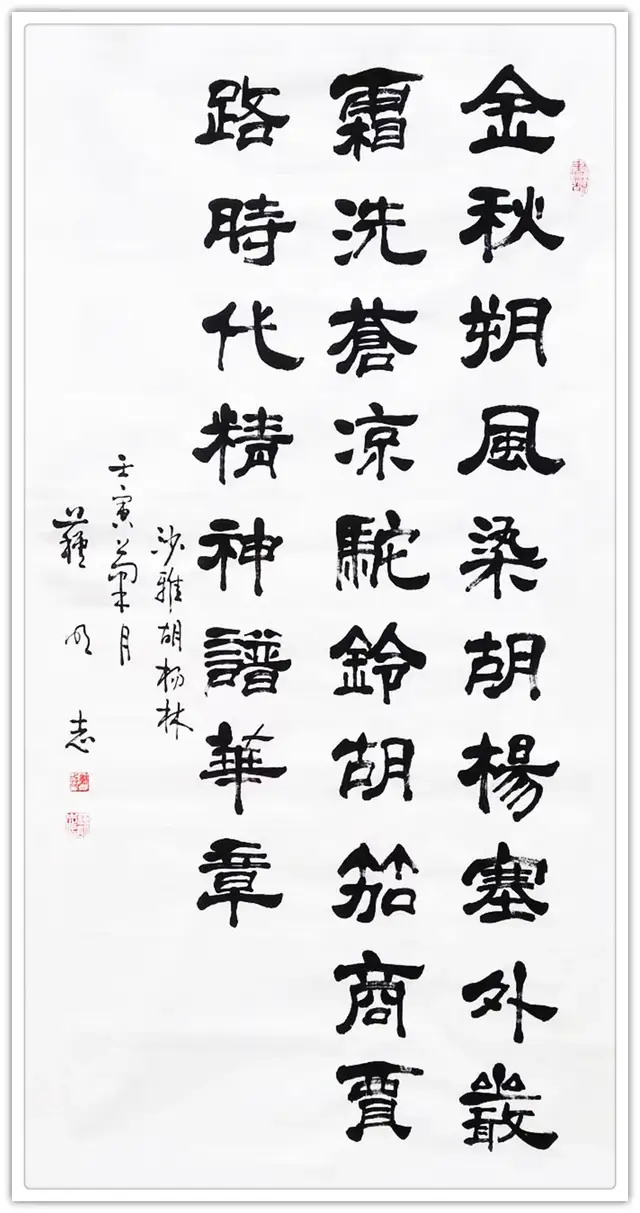 金秋朔風染胡楊塞外叢
霜洗蒼凉駝鈴胡笳商賈
路時代精神譜華章
沙雅胡杨林
壬寅菊月
蘇 志